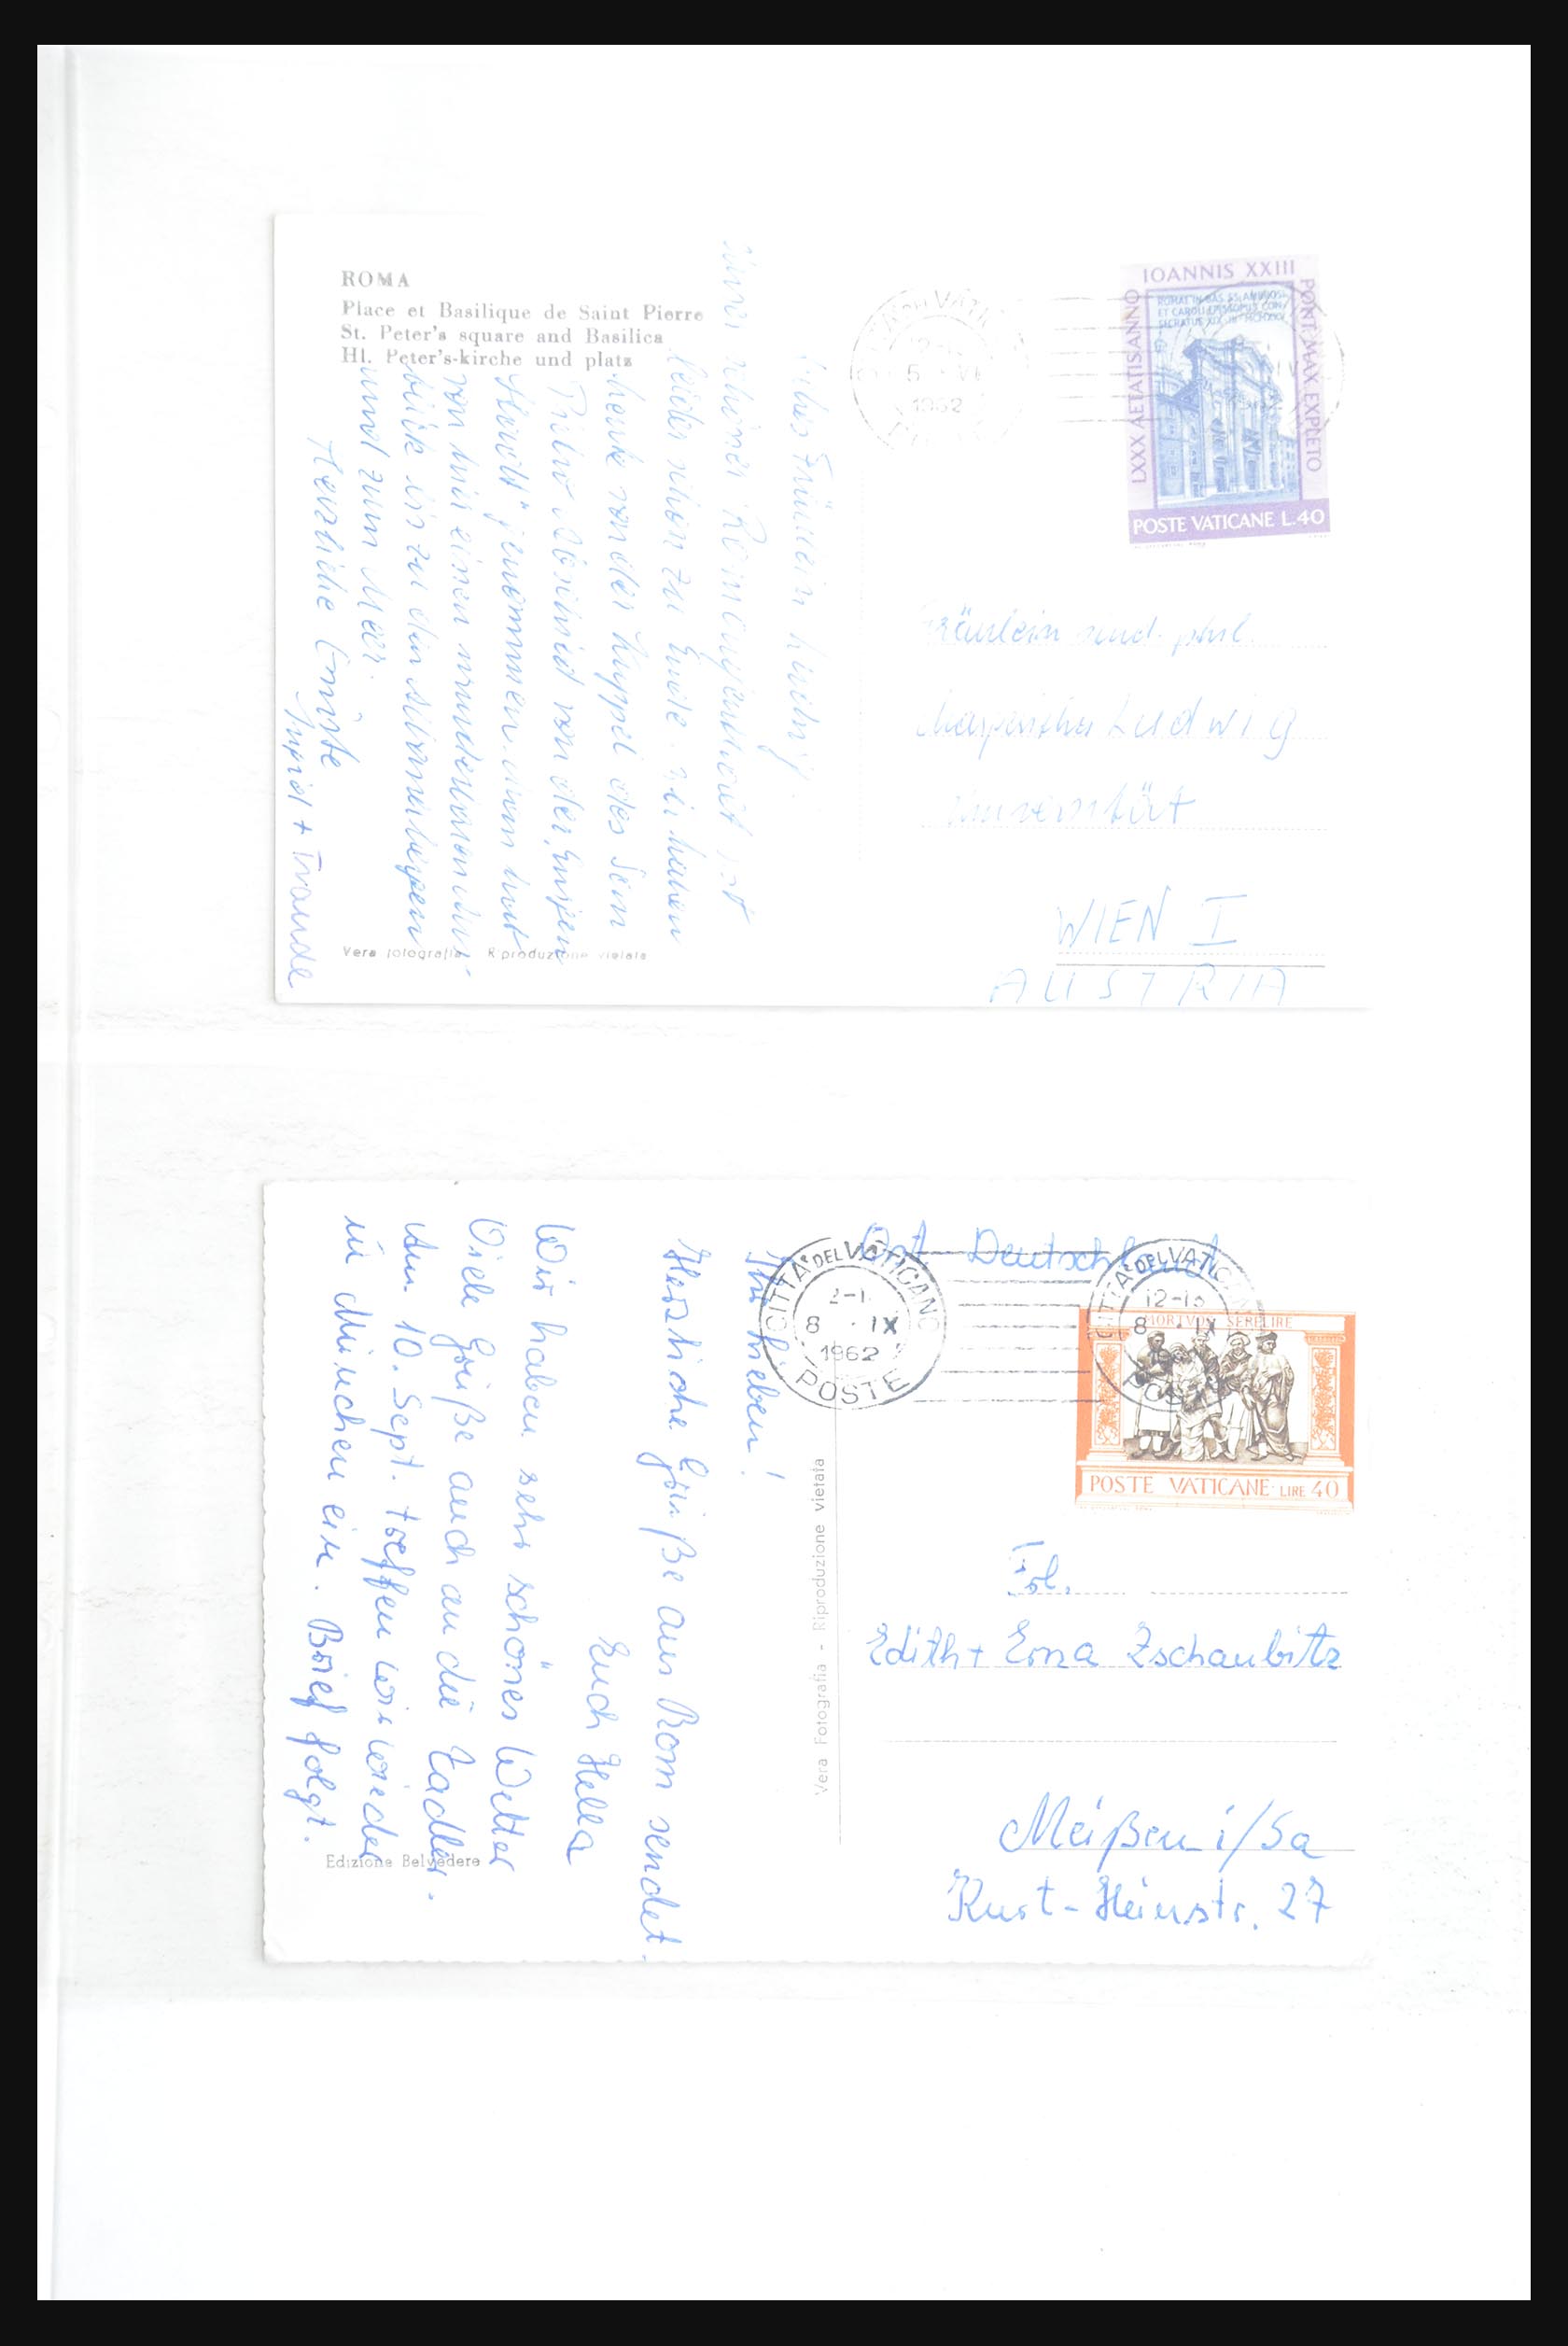 ROMA
Place et Basilique de Saint Pierre
St. Peter's square and Basilica
Hl. Peter's-kirche und platz
Fräulein
leider schon zu Ende. Wir haben
heute von der Kuppel des San
Pietro Abschied von der „Ewigen
genommen. Man hat
von hier einen wunderbaren
bis zu den Albanerbergen
und zum Meer.
Herzliche Grüße
+ Traude
Vera fotografia Riproduzione vietata
5 VI
1962
IOANNIS XXIII
PONT. MAX. EXPLETO
LXXX AETATIS ANNO
ROMAE IN BAS. SS. AMBROSI
ET CAROLI EPISCOPUS CON-
SECRATUS XIX
POSTE VATICANE L.40
Fräulein stud. phil.
Ludwig
Universität
WIEN I
AUSTRIA
Ihr Lieben!
Herzliche Grüße aus Rom sendet
Euch Hella
Wir haben sehr schönes Wetter
Viele Grüße auch an die
Am 10. Sept. treffen wir wieder
in München ein. Brief folgt.
Edizione Belvedere
Vera Fotografia - Riproduzione vietata
Ost Deutschland
CITTA DEL VATICANO
8 · IX
1962
POSTE
CITTA DEL VATICANO
12-13
8 IX
MORTVOS SEPELIRE
POSTE VATICANE · LIRE 40
Frl.
Edith + Erna Zschaubitz
Meißen i/Sa
Kurt-Heinstr. 27